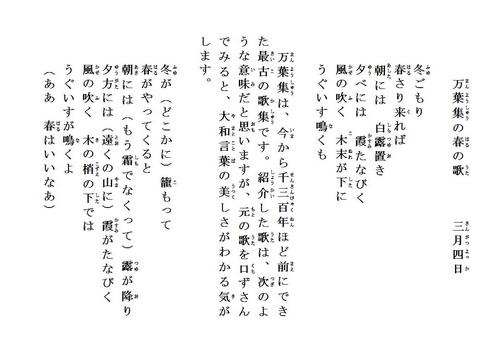 万葉集の春の歌　　三月四日
冬ごもり
春さり来れば
朝には　白露置き
夕べには　霞たなびく
風の吹く　木末が下に
うぐいす鳴くも
万葉集は、今から千三百年ほど前にでき
た最古の歌集です。紹介した歌は、次のよ
うな意味だと思いますが、元の歌を口ずさん
でみると、大和言葉の美しさがわかる気が
します。
冬が（どこかに）籠もって
春がやってくると
朝には（もう霜でなくって）露が降り
夕方には（遠くの山に）霞がたなびく
風の吹く　木の梢の下では
うぐいすが鳴くよ
（ああ　春はいいなあ）